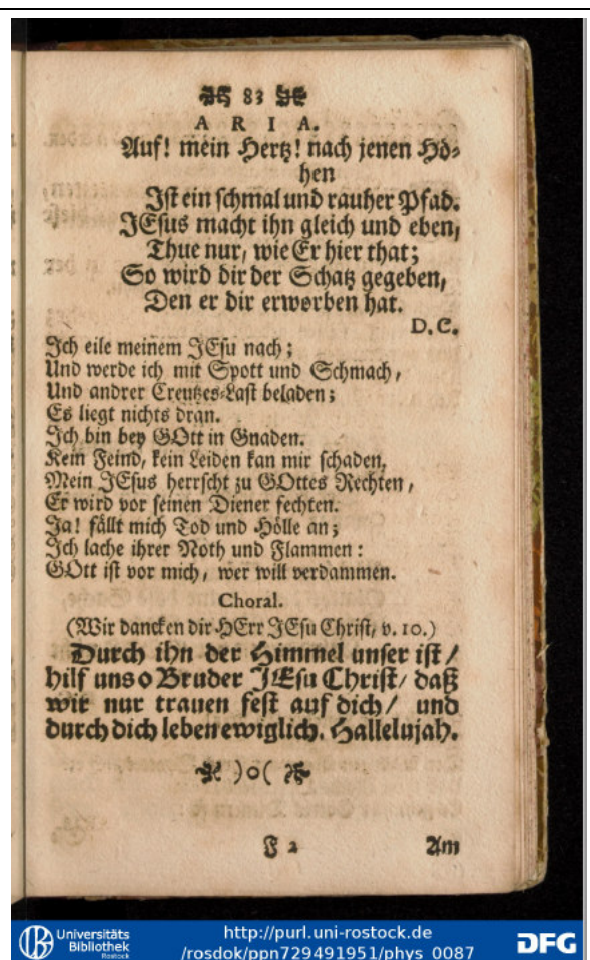 83
ARIA.
Auf! mein Hertz! nach jenen Hö-
hen
Ist ein schmal und rauher Pfad.
JEsus macht ihn gleich und eben,
Thue nur, wie Er hier that;
So wird dir der Schatz gegeben,
Den er dir erworben hat.
D. C.
Ich eile meinem JEsu nach;
Und werde ich mit Spott und Schmach,
Und andrer Creutzes-Last beladen;
Es liegt nichts dran.
Ich bin bey GOtt in Gnaden.
Kein Feind, kein Leiden kan mir schaden.
Mein JEsus herrscht zu GOttes Rechten,
Er wird vor seinen Diener fechten.
Ja! fällt mich Tod und Hölle an;
Ich lache ihrer Noth und Flammen:
GOtt ist vor mich, wer will verdammen.
Choral.
(Wir dancken dir HErr JEsu Christ, v. 10.)
Durch ihn der Himmel unser ist/
hilf uns o Bruder JEsu Christ/ daß
wir nur trauen fest auf dich/ und
durch dich leben ewiglich. Hallelujah.
)o(
F 2 Am
Universitäts Bibliothek Rostock
http://purl.uni-rostock.de
/rosdok/ppn729491951/phys_0087
DFG